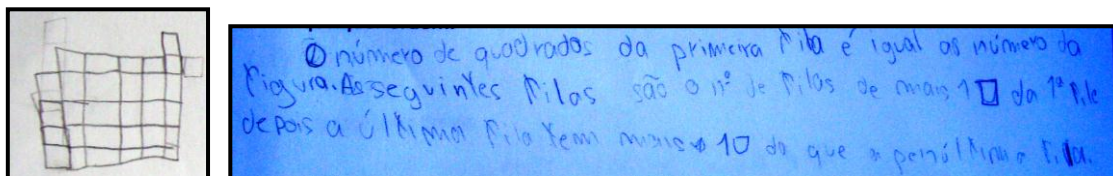 O número de quadrados da primeira fila é igual as número da
figura. As seguintes filas são o nº de filas de mais 1□ da 1ª file
depois a última fila tem mais 1□ do que a penúltima fila.